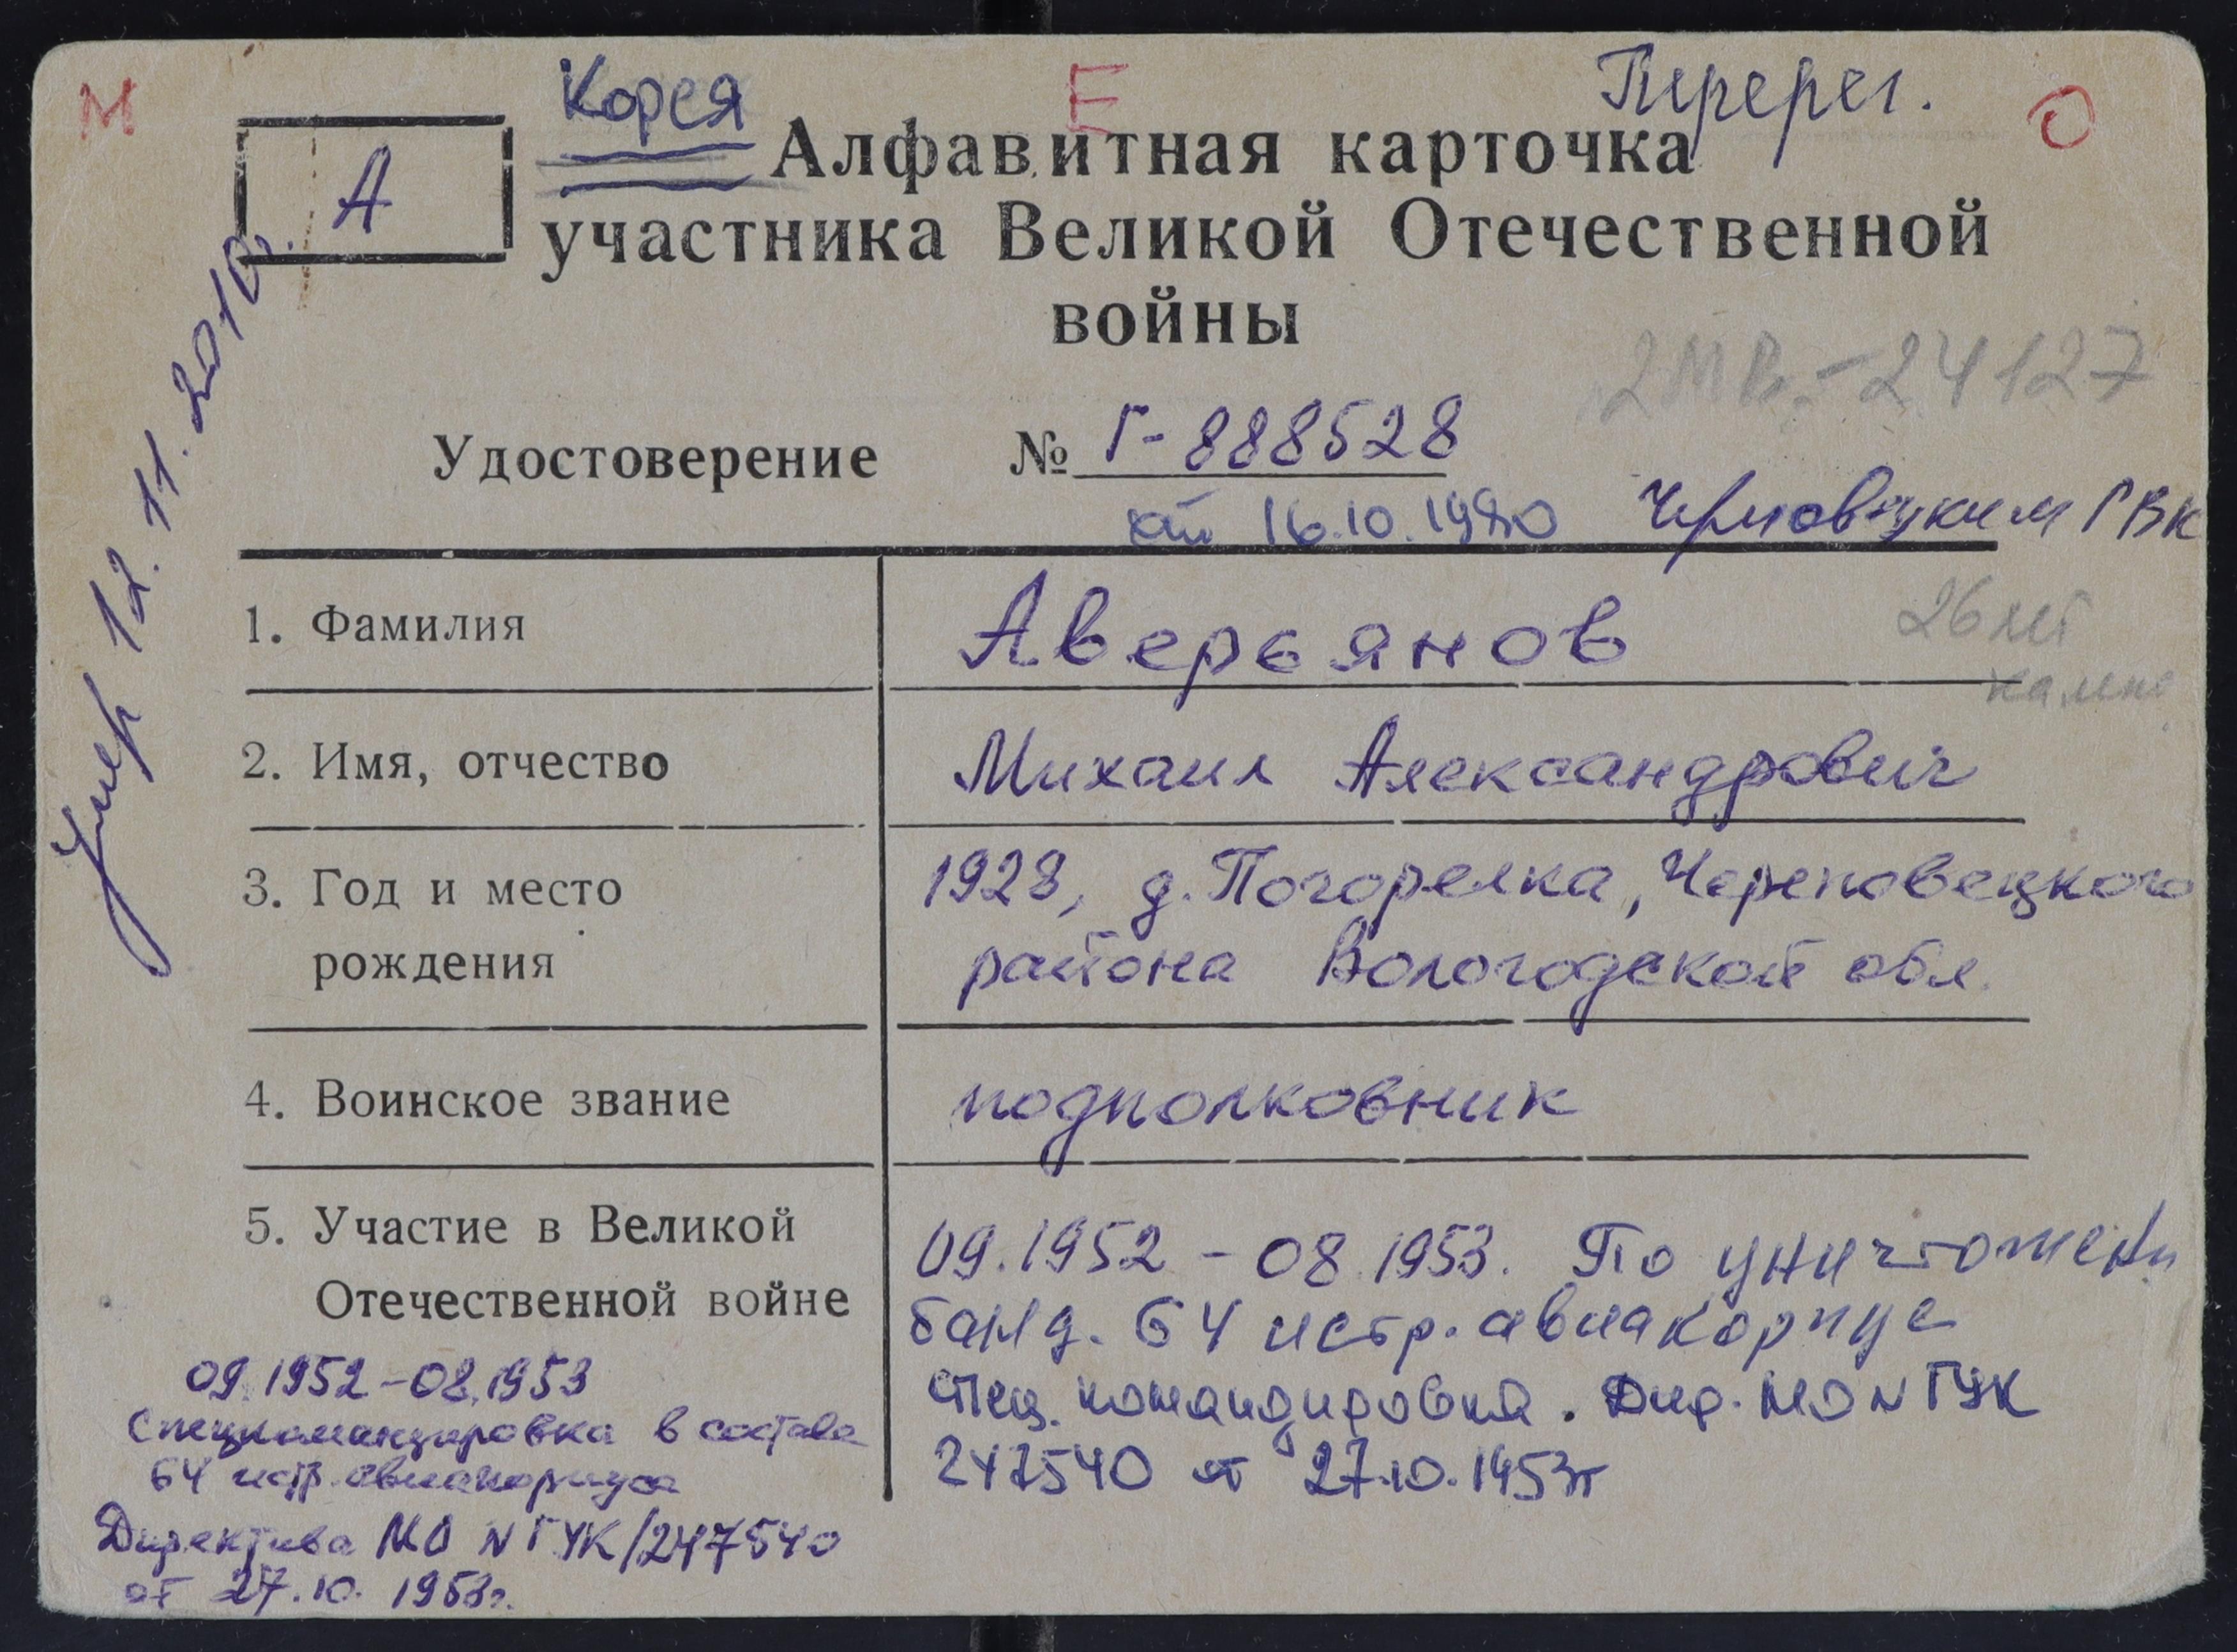 М
Корея
Е
Перерег.
О
А
Алфавитная карточка
участника Великой Отечественной
войны
2МВ.-24127
Удостоверение № Г-888528
от 16.10.1980 Черновицким ГВК
Умер 12.11.2010г.
1. Фамилия
Аверьянов
26 лет
2. Имя, отчество
Михаил Александрович
3. Год и место
рождения
1928, д. Погорелка, Череповецкого
района Вологодской обл.
4. Воинское звание
подполковник
5. Участие в Великой
Отечественной войне
09.1952 - 08.1953. По уничтожени
банд. 64 истр. авиакорпус
спец. командировка. Дир. МО N ГУК
247540 от 27.10.1953г
09.1952 - 08.1953
Спецкомандировка в составе
64 истр. авиакорпуса
Директива МО N ГУК/247540
от 27.10.1953г.